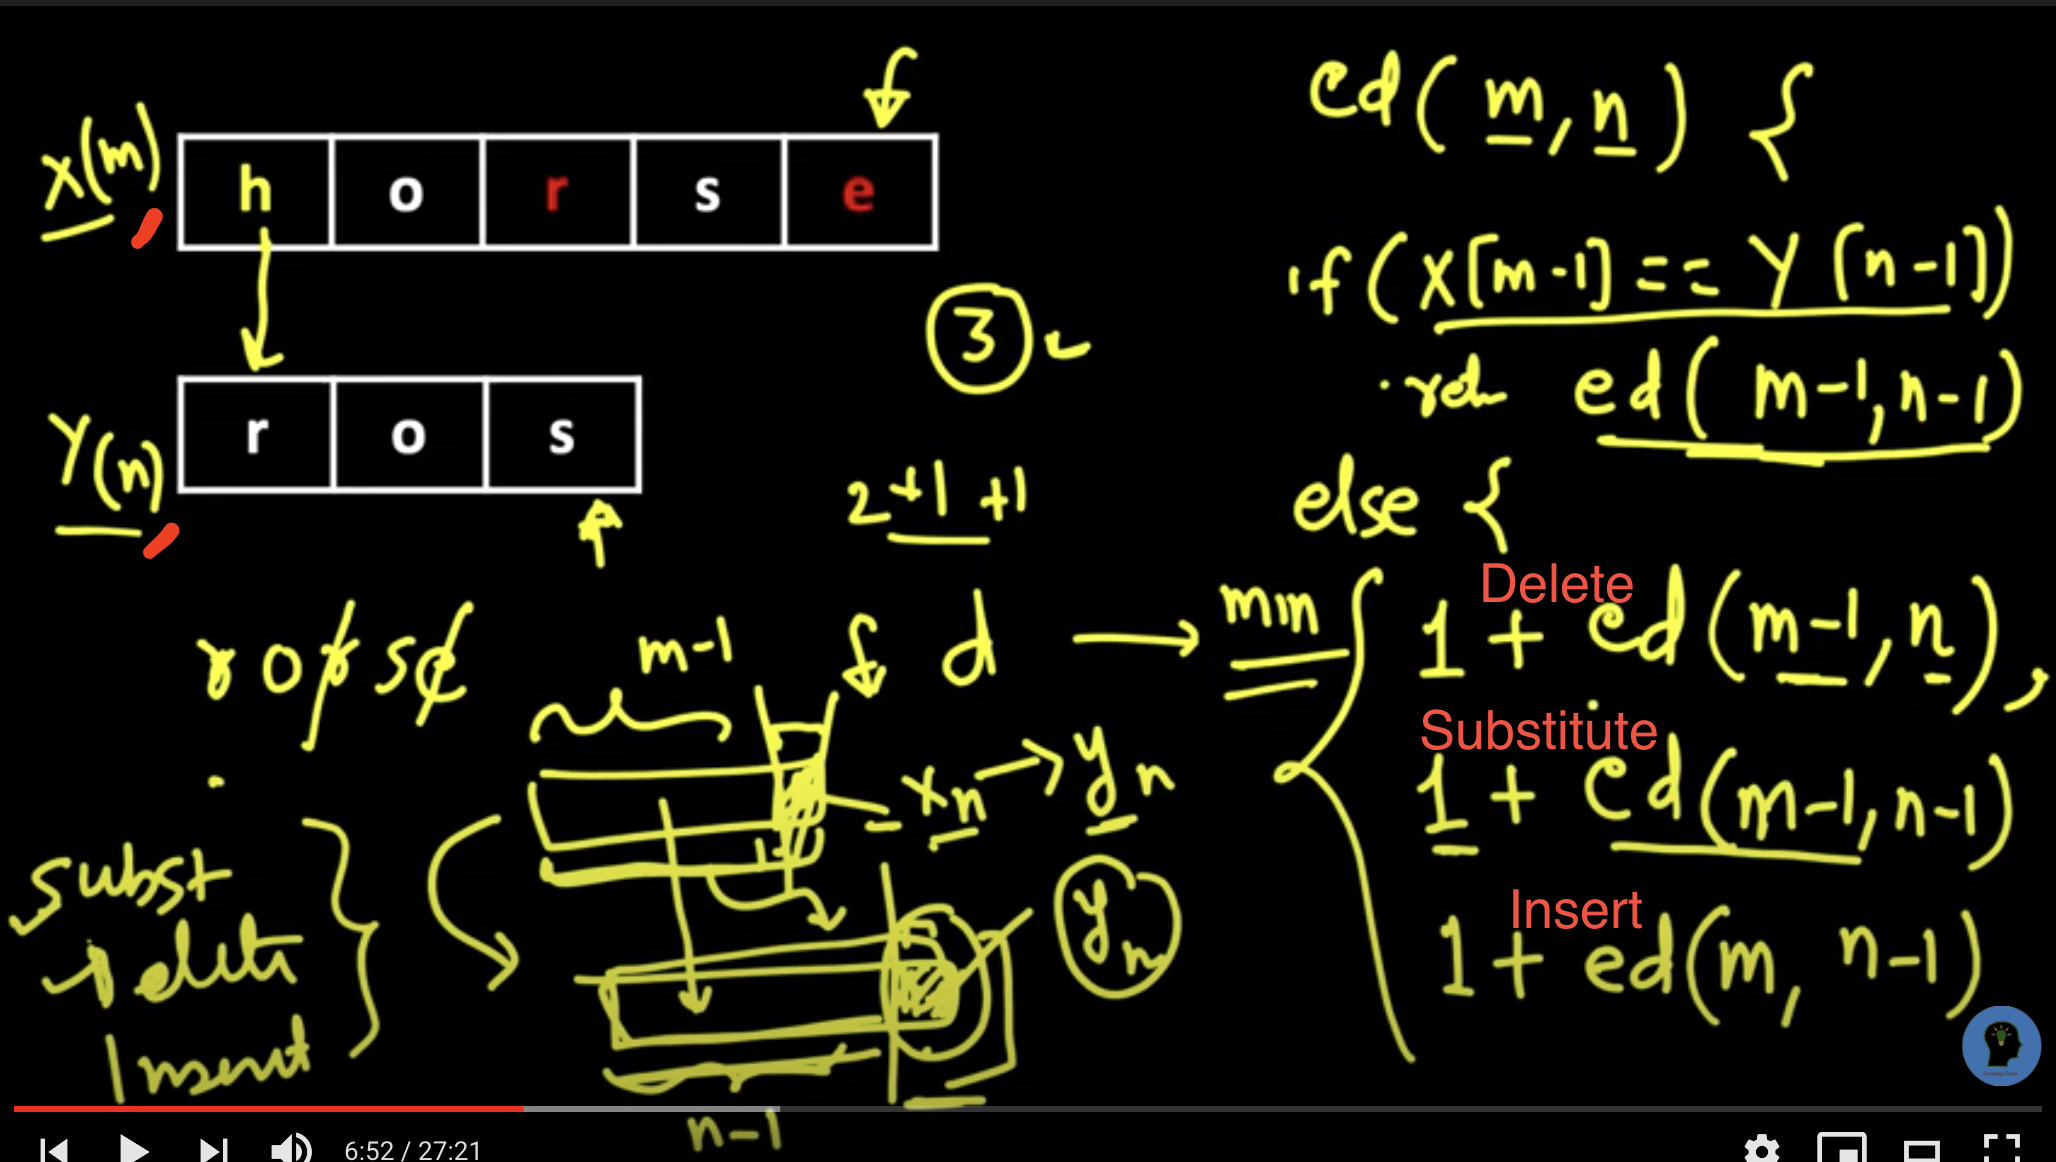 X(m)
h o r s e
Y(n)
r o s
3
2+1+1
r o r s e
m-1
d
xn → yn
yn
subst
delete
Insert
n-1
ed(m, n) {
if (X[m-1] == Y[n-1])
ed(m-1, n-1)
else {
min
Delete
1 + ed(m-1, n),
Substitute
1 + ed(m-1, n-1)
Insert
1 + ed(m, n-1)
6:52 / 27:21